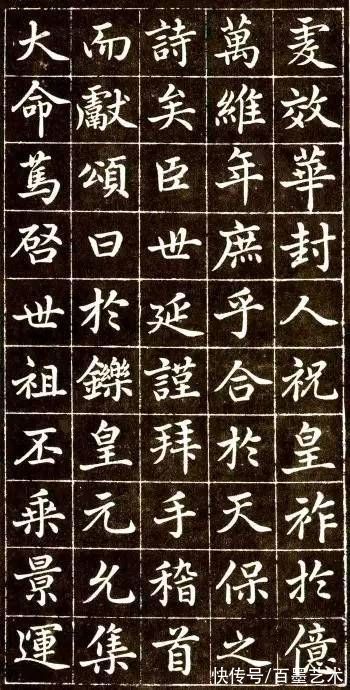 爰效華封人祝皇祚於億
萬維年庶乎合於天保之
詩矣臣世延謹拜手稽首
而獻頌曰於鑠皇元允集
大命篤啓世祖丕乘景運
快传号/百墨艺术